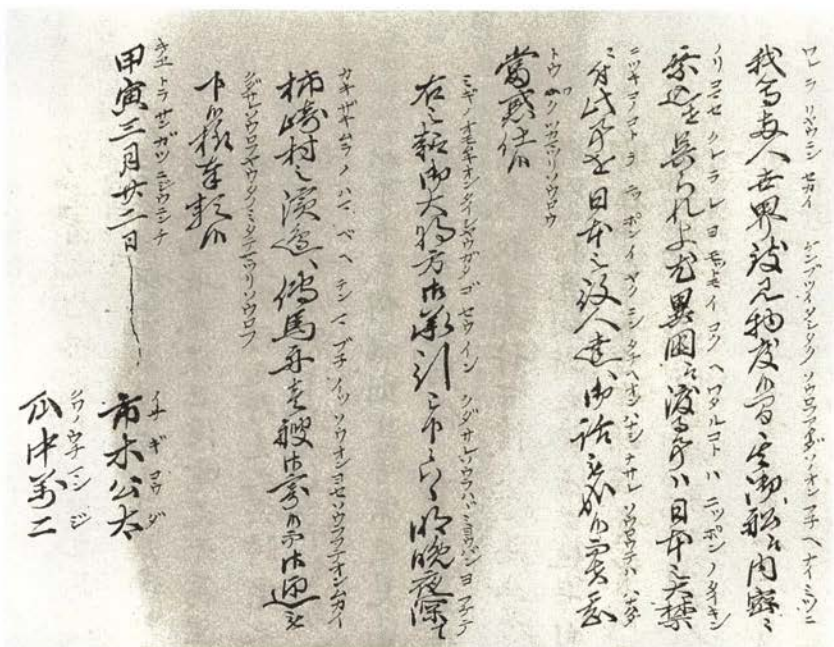 ワレラ リヤウニン セカイ ケンブツイタシタク ソウロウアイダ ソノオンフ子ヘ ナイミツニ
我等両人世界致見物度候間其御船江内密ニ
ノリコマセ クレラレヨ モツトモ イコクヘワタルコトハ ニッポンノタイキン
乗込セ呉られよ尤異国江渡る事ハ日本之大禁
ニツキコノコトヲ ニッポンノ ヤクニンタチヘオンハナシ ナサレ ソウロウテハ ハナハダ
ニ付此事を日本之役人達へ御話被成候而ハ甚
トウワクツカマツリソウロウ
當惑仕候
ミギノオモムキオンタイシヤウガタ ゴセウイン クダサレソウラハヾ ミョウバン ヨフケテ
右之趣御大將方御承引被下候ハヽ明晩夜深て
カキザキムラノ ハマベヘ テンマ ブ子 イッソウオンヨセソウラフテオンムカイ
柿崎村之濱邊へ傳馬舟壱艘御寄候而御迎被
クダサレソウロウヤウタノミタテマツリソウロフ
下候様奉頼候
キノエトラ サンガツ ニジウニニチ
甲寅三月廿二日
イチギ コウダ
市木公太
クワノウチ マンジ
瓜中萬二